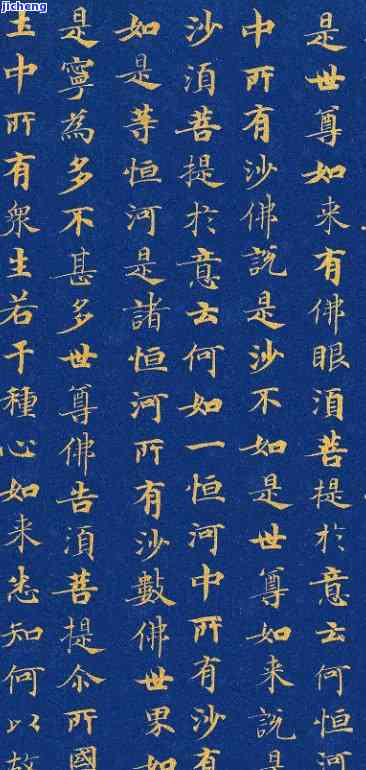 jicheng
是世尊如来有佛眼須菩提於意云何恒河
中所有沙佛説是沙不如是世尊如来説是
沙須菩提於意云何如一恒河中所有沙有
如是等恒河是諸恒河所有沙數佛世界如
是寧為多不甚多世尊佛告須菩提尒所國
土中所有衆生若干種心如来悉知何以故